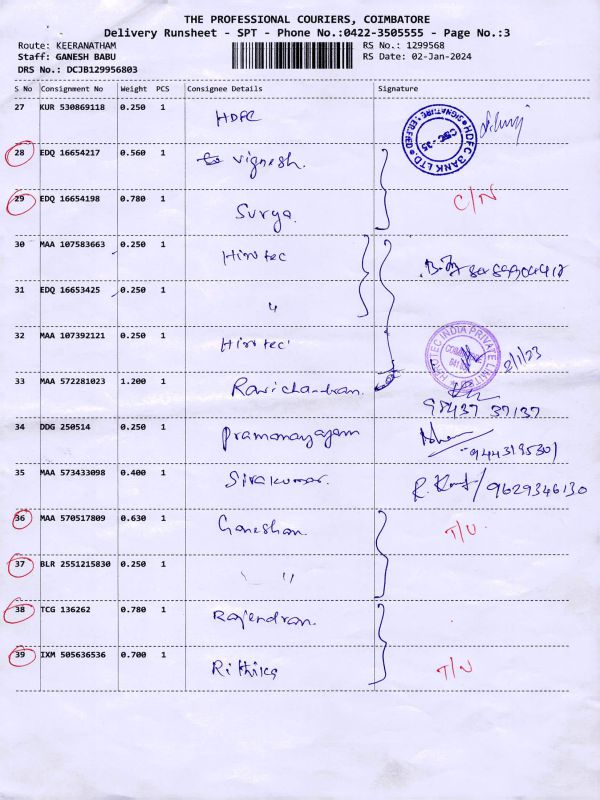 THE PROFESSIONAL COURIERS, COIMBATORE
Delivery Runsheet - SPT - Phone No.:0422-3505555 - Page No.:3
Route: KEERANATHAM RS No.: 1299568
Staff: GANESH BABU RS Date: 02-Jan-2024
DRS No.: DCJB129956803
S No Consignment No Weight PCS Consignee Details Signature
27 KUR 530869118 0.250 1 HDFC
HDFC BANK LTD. SIGNATURE VERIFIED
28 EDQ 16654217 0.560 1 Vignesh.
29 EDQ 16654198 0.780 1 Surya. C/N
30 MAA 107583663 0.250 1 Hirotec
31 EDQ 16653425 0.250 1 "
32 MAA 107392121 0.250 1 Hirotec
HIROTEC INDIA PRIVATE LIMITED 2/1/23
33 MAA 572281023 1.200 1 Ravichandran. 98437 37137
34 DDG 250514 0.250 1 Pramanayagam 9443195301
35 MAA 573433098 0.400 1 Sivakumar. 9629346130
36 MAA 570517809 0.630 1 Ganeshan T/U
37 BLR 2551215830 0.250 1 "
38 TCG 136262 0.780 1 Rajendran.
39 IXM 505636536 0.700 1 Rithika T/N